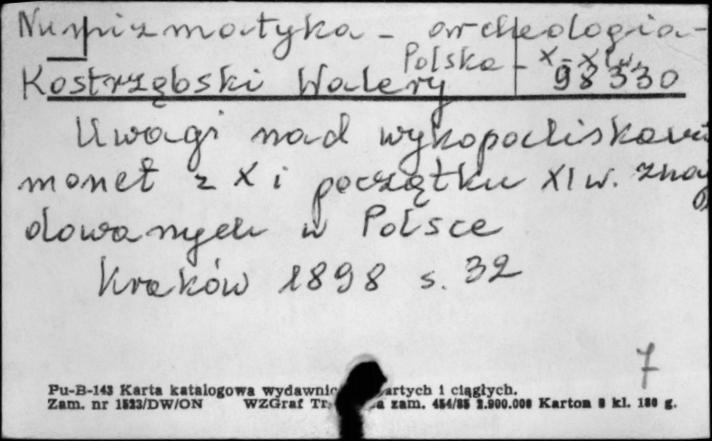 Numizmatyka - archeologia -
Polska - X-XI w.
Kostrzębski Walery 98330
Uwagi nad wykopaliskami
monet z X i początku XI w. znaj
dowanych w Polsce
Kraków 1898 s. 32
7
Pu-B-143 Karta katalogowa wydawnic artych i ciągłych.
Zam. nr 1523/DW/ON WZGraf a zam. 454/85 2.900.000 Karton 8 kl. 180 g.